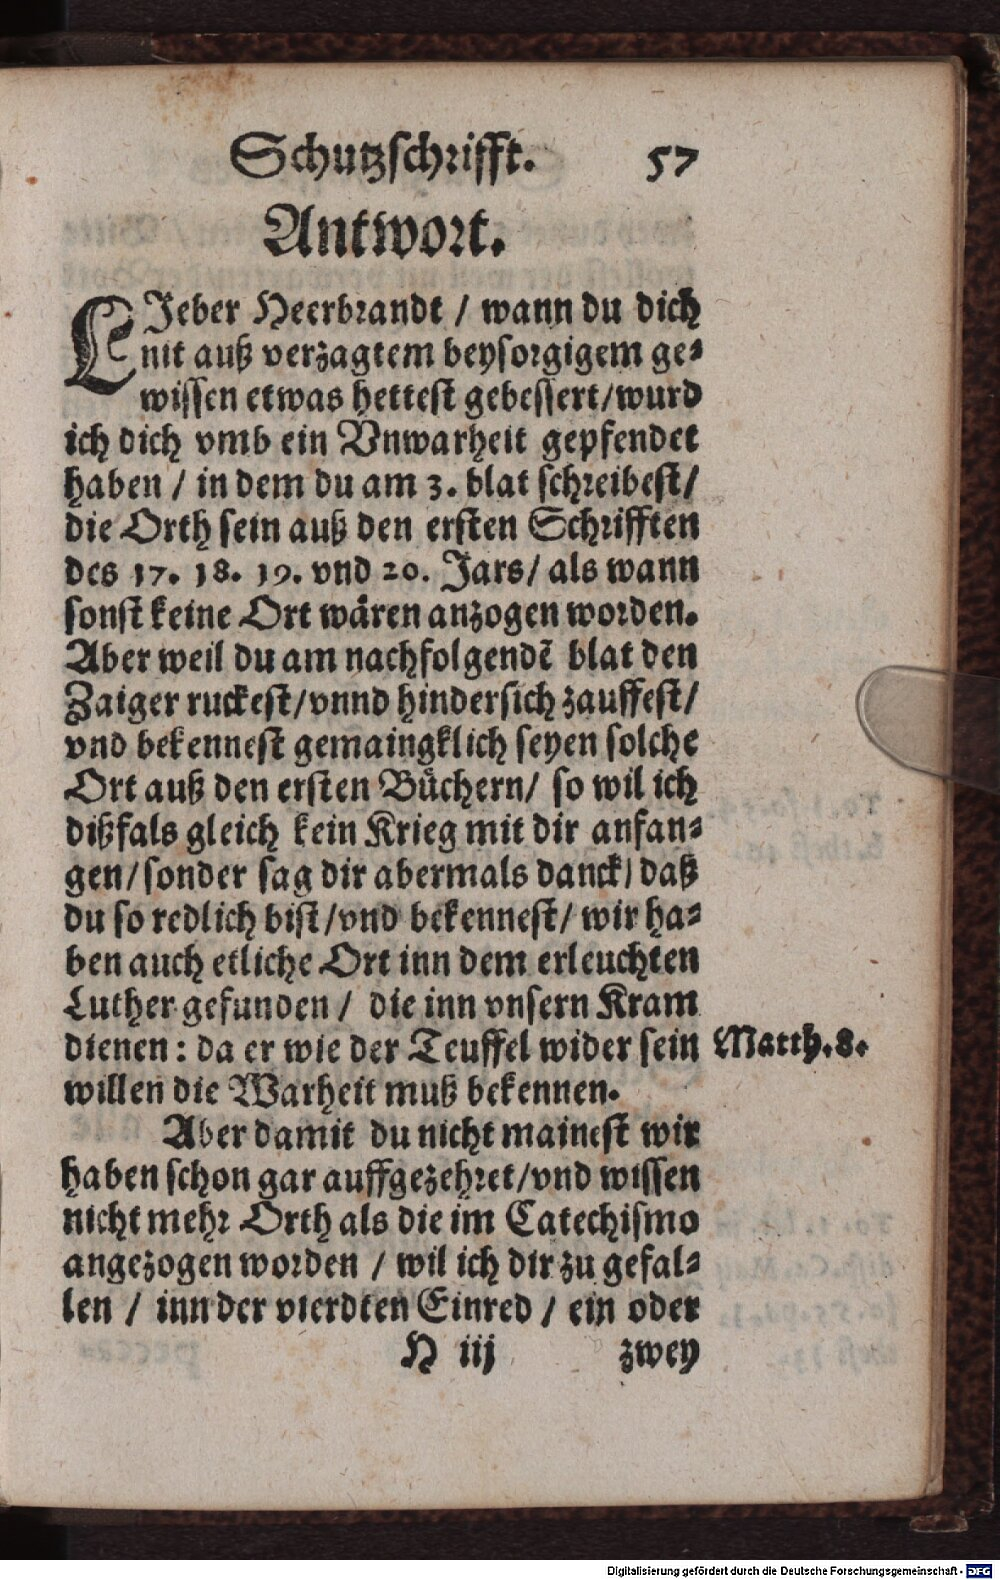 Schutzschrifft. 57
Antwort.
LIeber Heerbrandt / wann du dich
nit auß verzagtem beysorgigem ge-
wissen etwas hettest gebessert/wurd
ich dich vmb ein Vnwarheit gepfendet
haben / in dem du am 3. blat schreibest/
die Orth sein auß den ersten Schrifften
des 17. 18. 19. vnd 20. Jars/ als wann
sonst keine Ort wären anzogen worden.
Aber weil du am nachfolgendẽ blat den
Zaiger ruckest/vnnd hindersich zauffest/
vnd bekennest gemaingklich seyen solche
Ort auß den ersten Büchern/ so wil ich
dißfals gleich kein Krieg mit dir anfan-
gen/sonder sag dir abermals danck/ daß
du so redlich bist/vnd bekennest/ wir ha-
ben auch etliche Ort inn dem erleuchten
Luther gefunden / die inn vnsern Kram
dienen: da er wie der Teuffel wider sein
Matth.8.
willen die Warheit muß bekennen.
Aber damit du nicht mainest wir
haben schon gar auffgezehret/vnd wissen
nicht mehr Orth als die im Catechismo
angezogen worden / wil ich dir zu gefal-
len / inn der vierdten Einred / ein oder
H iij zwey
Digitalisierung gefördert durch die Deutsche Forschungsgemeinschaft - DFG